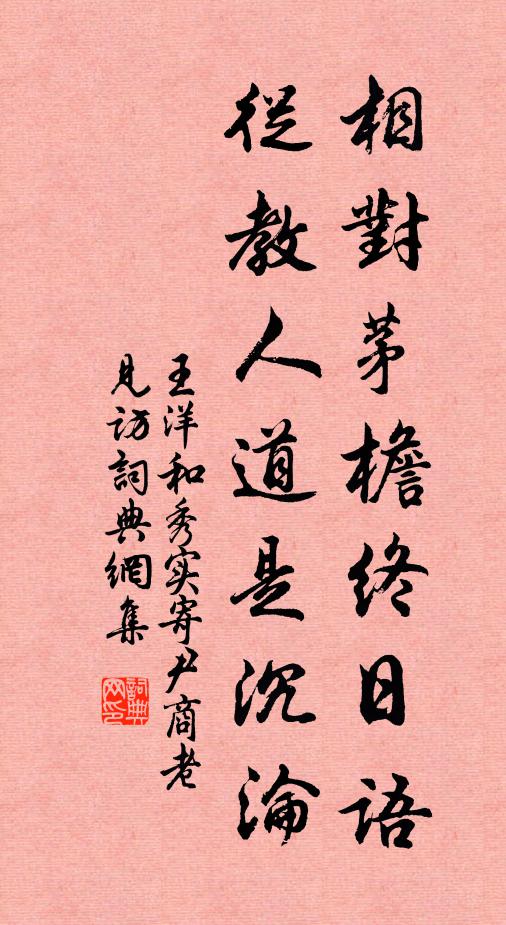 相對茅檐終日語
從教人道是沉淪
王洋和秀实寄尹商老
見访詞典網集
詞典網印